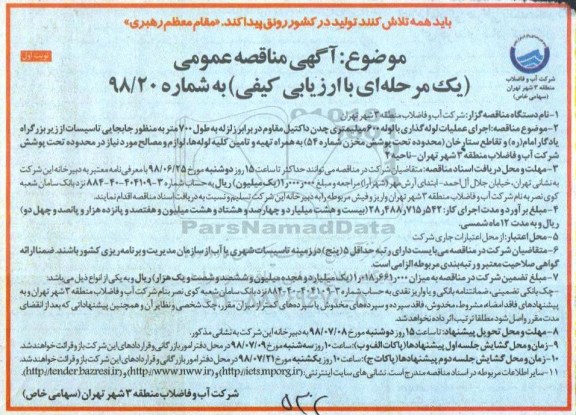 باید همه تلاش کنند تولید در کشور رونق پیدا کند. «مقام معظم رهبری»
نوبت اول
موضوع: آگهی مناقصه عمومی
(یک مرحله‌ای با ارزیابی کیفی) به شماره ۹۸/۲۰
شرکت آب و فاضلاب
منطقه ۳ شهر تهران
(سهامی خاص)
۱-نام دستگاه مناقصه گزار: شرکت آب و فاضلاب منطقه ۳ شهر تهران
۲-موضوع مناقصه: اجرای عملیات لوله گذاری با لوله ۳۰۰ میلیمتری چدن داکتیل مقاوم در برابر زلزله به طول ۷۰۰ متر به منظور جابجایی تاسیسات از زیر بزرگراه
یادگار امام (ره) و تقاطع ستارخان (محدوده تحت پوشش مخزن شماره ۵۴) به همراه تهیه و تامین کلیه لوله‌ها، لوازم و مصالح مورد نیاز در محدوده تحت پوشش
شرکت آب و فاضلاب منطقه ۳ شهر تهران - ناحیه ۴
۳-مهلت و محل دریافت اسناد مناقصه: متقاضیان شرکت در مناقصه می‌توانند حداکثر تا ساعت ۱۵ روز دوشنبه مورخ ۹۸/۰۶/۲۵ با معرفی نامه معتبر به دبیرخانه این شرکت
به نشانی تهران، خیابان جلال آل احمد - ابتدای آرش مهر (شهرآرا) مراجعه و مبلغ ۱٫۰۰۰٫۰۰۰ (یک میلیون) ریال به حساب شماره ۳-۴۰۴۱۰۹-۴۰-۸۸۴ نزد بانک سامان شعبه
کوی نصر به نام شرکت آب و فاضلاب منطقه ۳ شهر تهران واریز و فیش مربوطه را به دبیرخانه این شرکت تسلیم و نسبت به دریافت اسناد مناقصه اقدام نمایند.
۴-مبلغ برآورد و مدت اجرای کار: ۲۸٫۴۸۸٫۷۱۵٫۵۴۲ (بیست و هشت میلیارد و چهارصد و هشتاد و هشت میلیون و هفتصد و پانزده هزار و پانصد و چهل دو)
ریال و به مدت ۱۲ ماه شمسی.
۵-محل اعتبار: از محل اعتبارات جاری شرکت
۶-متقاضیان شرکت در مناقصه می‌بایست دارای رتبه حداقل ۵ (پنج) در زمینه تاسیسات شهری یا آب از سازمان مدیریت و برنامه ریزی کشور باشند. ضمنا ارائه
گواهی صلاحیت معتبر و رتبه بندی مربوطه الزامی است.
۷-مبلغ تضمین شرکت در مناقصه به میزان ۱٫۰۱۸٫۶۶۱٫۰۰۰ (یک میلیارد و هجده میلیون و ششصد و شصت و یک هزار) ریال و به یکی از انواع ذیل می‌باشد:
-چک بانکی تضمینی، ضمانتنامه بانکی و یا واریز نقدی به حساب شماره ۳-۴۰۴۱۰۹-۴۰-۸۸۴ نزد بانک سامان شعبه کوی نصر بنام شرکت آب و فاضلاب منطقه ۳ شهر تهران و به
پیشنهادهای فاقد امضاء، مشروط، مخدوش، فاقد سپرده و سپرده‌های مخدوش یا سپرده‌های کمتر از میزان مقرر، چک شخصی و نظایر آن و همچنین پیشنهاداتی که بعد از انقضای
مدت مقرر واصل شود مطلقا ترتیب اثر داده نخواهد شد.
۸-مهلت و محل تحویل پیشنهاد: تا ساعت ۱۵ روز دوشنبه مورخ ۹۸/۰۷/۰۸ به دبیرخانه این شرکت به نشانی مذکور.
۹-زمان و محل گشایش جلسه اول پیشنهادها (پاکات الف و ب): ساعت ۱۰ روز سه شنبه مورخ ۹۸/۰۷/۰۹ در محل دفتر امور بازرگانی و قراردادهای این شرکت باز و قرائت خواهند شد.
۱۰-زمان و محل گشایش جلسه دوم پیشنهادها (پاکات ج): ساعت ۱۰ روز یکشنبه مورخ ۹۸/۰۷/۲۱ در محل دفتر امور بازرگانی و قراردادهای این شرکت باز و قرائت خواهند شد.
۱۱-سایر اطلاعات مربوطه در اسناد مناقصه مندرج است. نشانی سایت اینترنتی: (http://iets.mporg.ir) و (http://www.nww.ir) و (http://tender.bazresi.ir)
شرکت آب و فاضلاب منطقه ۳ شهر تهران (سهامی خاص)
ParsNamadData